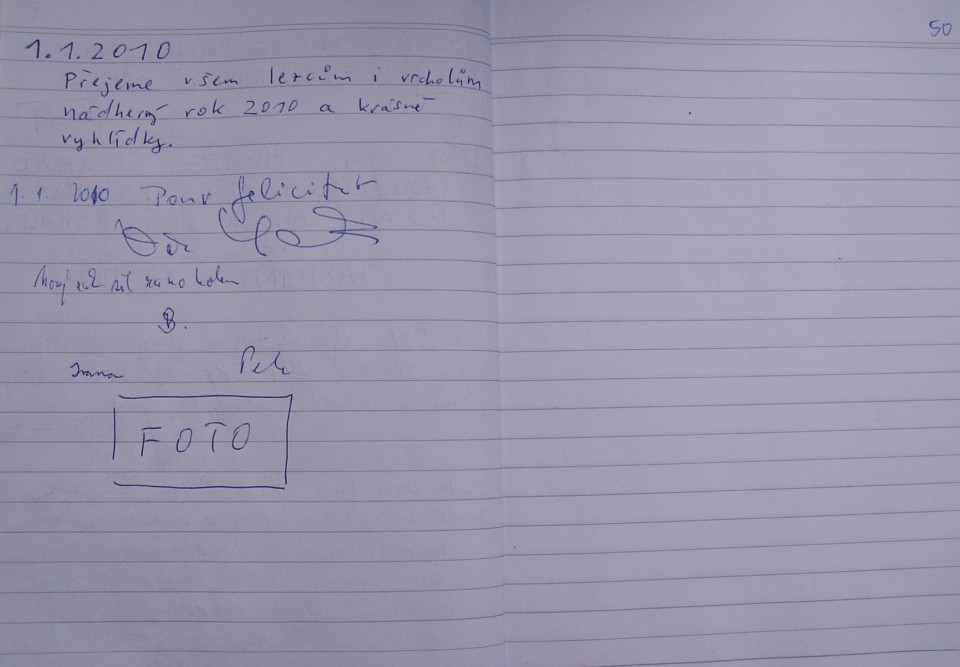 50
1.1.2010
Přejeme všem lezcům i vrcholům
nádherný rok 2010 a krásné
vyhlídky.
1.1. 2010 Pour feliciter
B.
Ivana Petr
FOTO